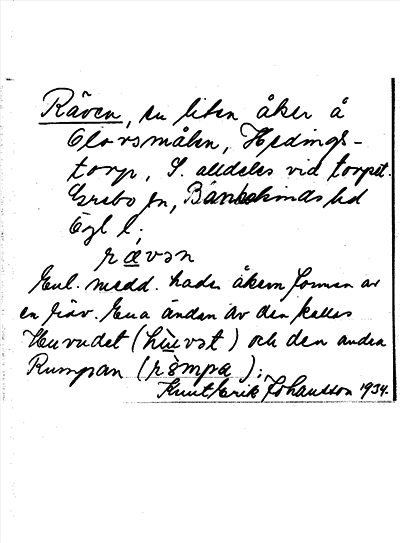 Räven, en liten åker å
Olovsmålen, Hedings-
torp, S. alldeles vid torpet.
Grebo sn, Bankekinds hd
Ögl l.
rävən
Enl. medd. hade åkern formen av
en räv. Ena ändan av den kallas
Huvudet (hùvət) och den andra
Rumpan (rɵ̀mpa);
Knut Erik Johansson 1934.